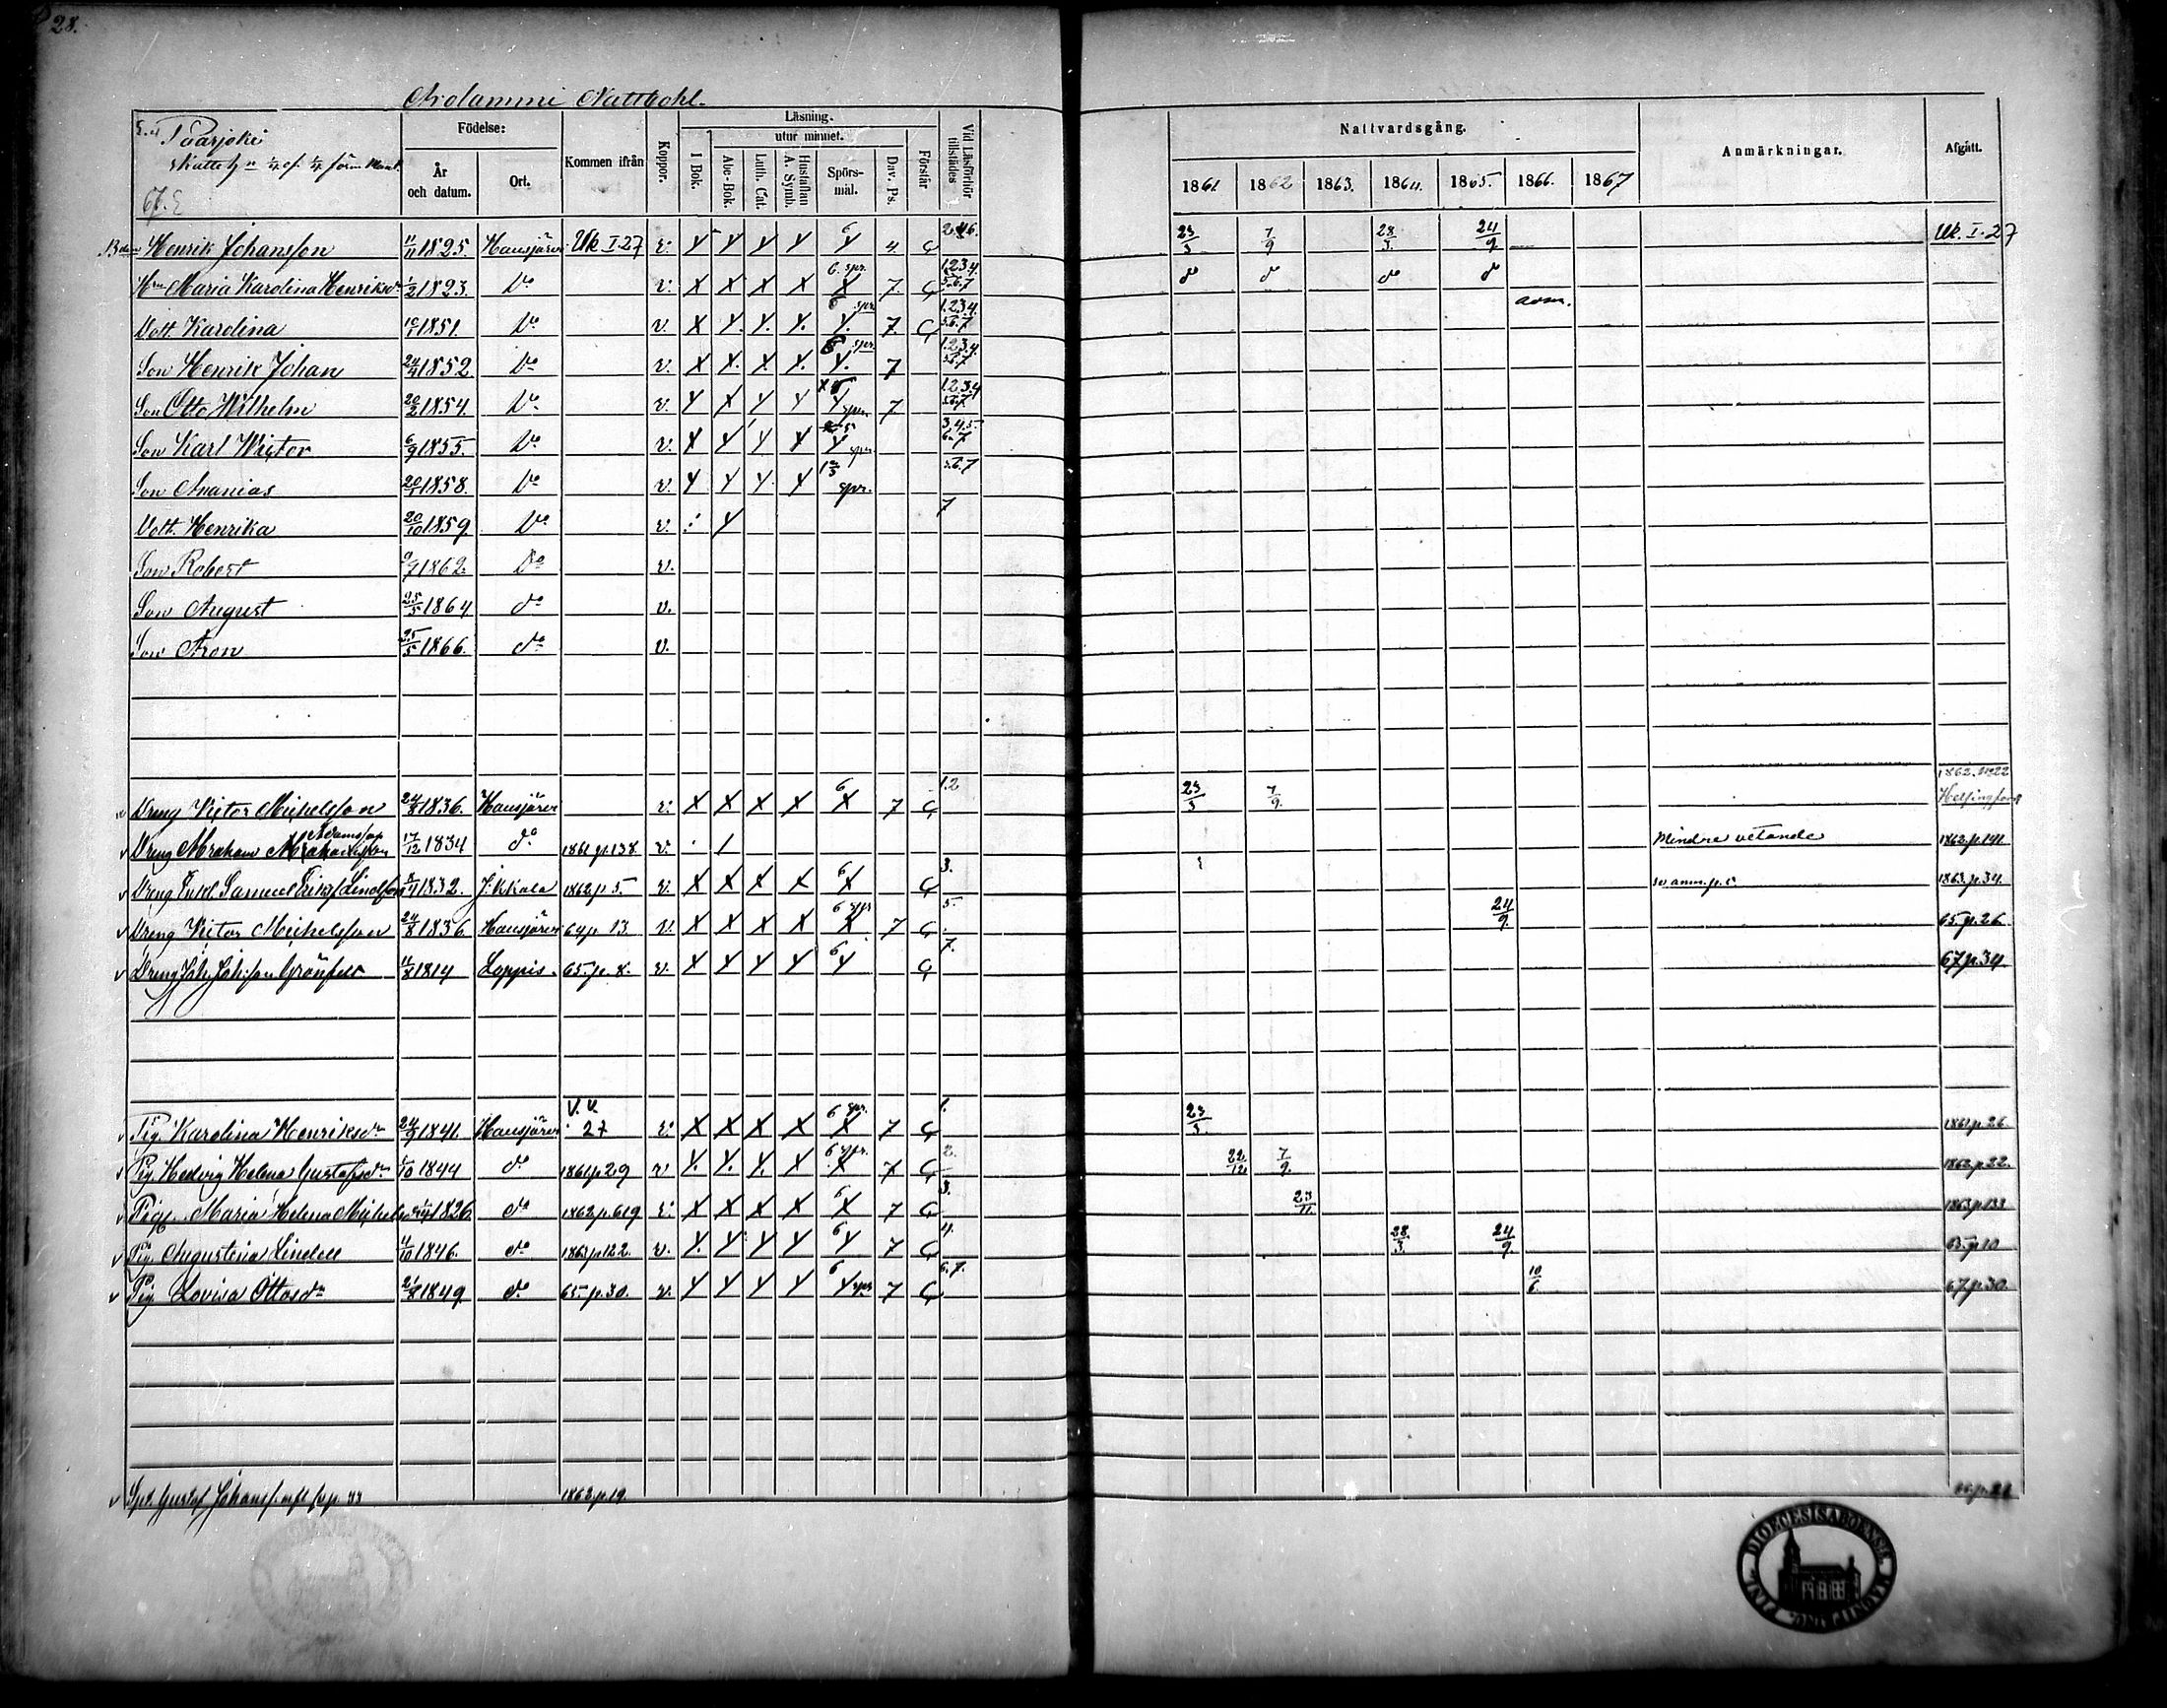 28.
Arolammi Nattbohl.
Paarjoki
67. E
Födelse:
År och datum.
Ort.
Kommen ifrån
Koppor.
Läsning.
I Bok.
utur minnet.
Abc-Bok.
Luth. Cat.
Hustaflan A. Symb.
Spörs-mål.
Dav. Ps.
Förstår
Vid Läsförhör tillstädes
Nattvardsgång.
1861 1862 1863. 1864. 1865. 1866. 1867
Anmärkningar.
Afgått.
Henrik Johansson 11/11 1825. Hausjärvi Uk I.27 v. Y Y Y Y 6 Y 4 23/3 7/9 28/3. 24/9 Uk. I. 27
Hru Maria Karolina Henriksdr 1/2 1823. Do v. X X X X 6. spr. X 7. 1.2.3.4. 5.6.7 do do do do
Dott. Karolina 10/1 1851. Do v. X Y. Y. Y. 6 spr. Y. 7. 1.2.3.4. 5.6.7 adm.
Son Henrik Johan 24/4 1852 Do v. X X. X X. 6 spr. Y. 7 1.2.3.4. 5.6.7
Son Otto Wilhelm 20/2 1854. Do v. Y X Y Y Y spr. 7 1.2.3.4 5.6.7
Son Karl Wictor 6/9 1855. Do v. X Y Y X Y spr. 3.4.5. 6.7
Son Ananias 20/1 1858. Do v. Y Y Y. Y spr. 5.6.7
Dott. Henrika 20/10 1859. Do v. Y 7
Son Robert 9/7 1862. Do v.
Son August 25/5 1864 do v.
Son Aron 25/5 1866. do v.
Dreng Victor Michelsson 24/8 1836. Hausjärvi v. X X X X 6 X 7 1.2 23/3 7/9. 1862. No 22 Helsingfors
Dreng Abraham Adamsson 17/12 1834 do 1861 p. 138. v. Mindre vetande 1862. p. 141.
Dreng Samuel Eriks. Lindfors 1832. J:kkala 1862 p. 5. v. X X X X 6 X 3. 1863. p. 34.
Dreng Victor Michelsson 24/8 1836 Hausjärvi 64 p. 13 v. X X X X 6 spr X 7 5. 24/9. 65. p. 26.
Dreng Joh. Joh:son Grönfors 11/8 1814 Loppis. 65. p. 8. v. X Y Y Y 6 Y 7. 67. p. 34.
Pig. Karolina Henriksdr 24/9 1841. Hausjärvi V. V. 27 v. X X X X 6 spr. X 7 1. 23/3. 1861. p. 26
Pig. Hedvig Helena Gustafsdr 1/10 1844 do 1861 p. 29 v Y. Y. Y. X 6 spr. X 7 2. 22/12 7/9. 1862. p. 22.
Pig. Maria Helena Michels 1826. do 1862. p. 619 v. X X X X 6 X 7 3. 23/11. 1863. p. 133
Pig. Augustina Lindell 4/10 1846. do 1863 p. 122. v. Y. Y Y Y 6 Y 7 4. 28/3. 24/9. 65. p. 10
Pig. Lovisa Ottosdr 21/8 1849. do 65. p. 30. v. Y Y Y Y 6 Y spr 7 6. 7. 10/6. 67. p. 30.
Gustaf Johanss. 1863. p. 19.
DIOECESIS ABOENSIS